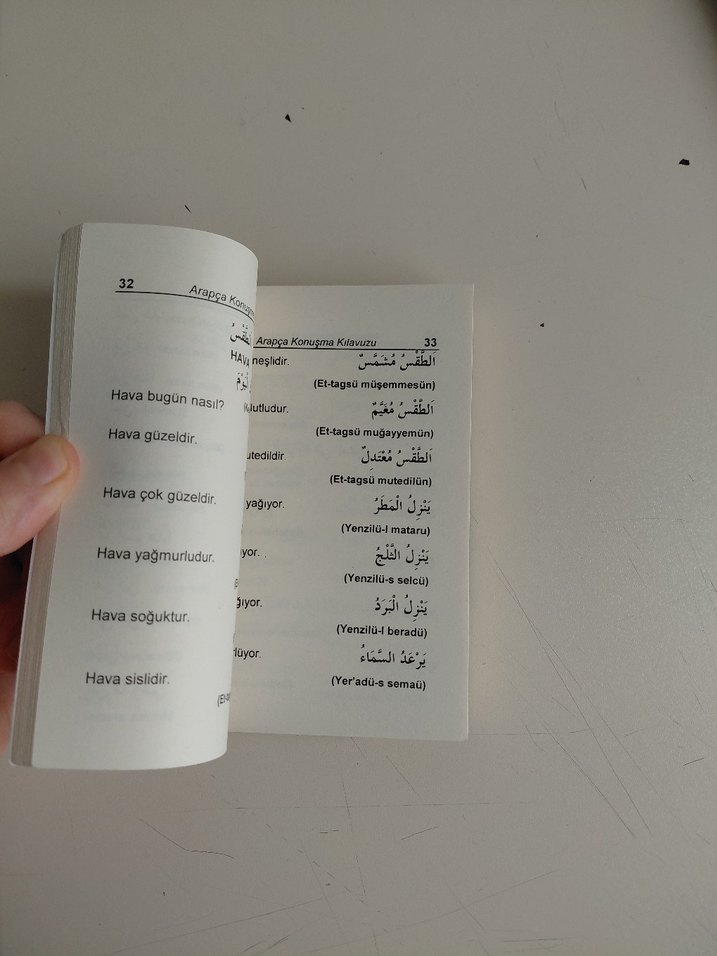 32
Arapça
HAVA
Hava bugün nasıl?
Hava güzeldir.
Hava çok güzeldir.
Hava yağmurludur.
Hava soğuktur.
Hava sislidir.
Arapça Konuşma Kılavuzu 33
neşlidir. اَلطَّقْسُ مُشَمَّسٌ
(Et-tagsü müşemmesün)
lutludur. اَلطَّقْسُ مُغَيَّمٌ
(Et-tagsü muğayyemün)
utedildir. اَلطَّقْسُ مُعْتَدِلٌ
(Et-tagsü mutedilün)
yağıyor. يَنْزِلُ الْمَطَرُ
(Yenzilü-l mataru)
yor. يَنْزِلُ الثَّلْجُ
(Yenzilü-s selcü)
ğıyor. يَنْزِلُ الْبَرَدُ
(Yenzilü-l beradü)
rlüyor. يَرْعَدُ السَّمَاءُ
(Yer'adü-s semaü)